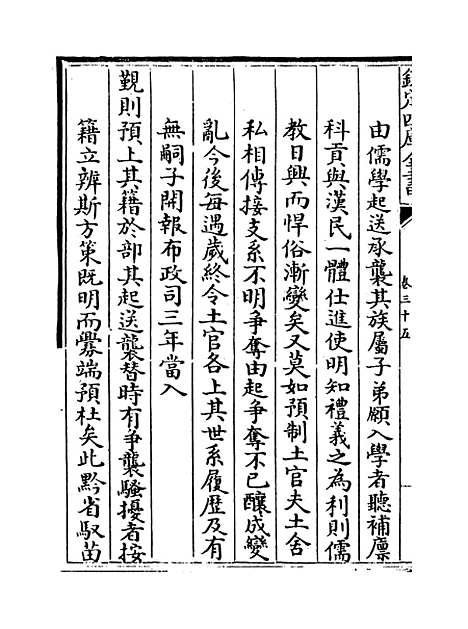 欽定四庫全書
卷三十五
由儒學起送承襲其族屬子弟願入學者聽補廩
科貢與漢民一體仕進使明知禮義之為利則儒
教日興而悍俗漸變矣又莫如預制土官夫土舍
私相傳接支系不明爭奪由起爭奪不已釀成變
亂今後每遇歲終令土官各上其世系履歷及有
無嗣子開報布政司三年當入
覲則預上其籍於部其起送襲替時有爭襲騷擾者按
籍立辨斯方策既明而釁端預杜矣此黔省馭苗